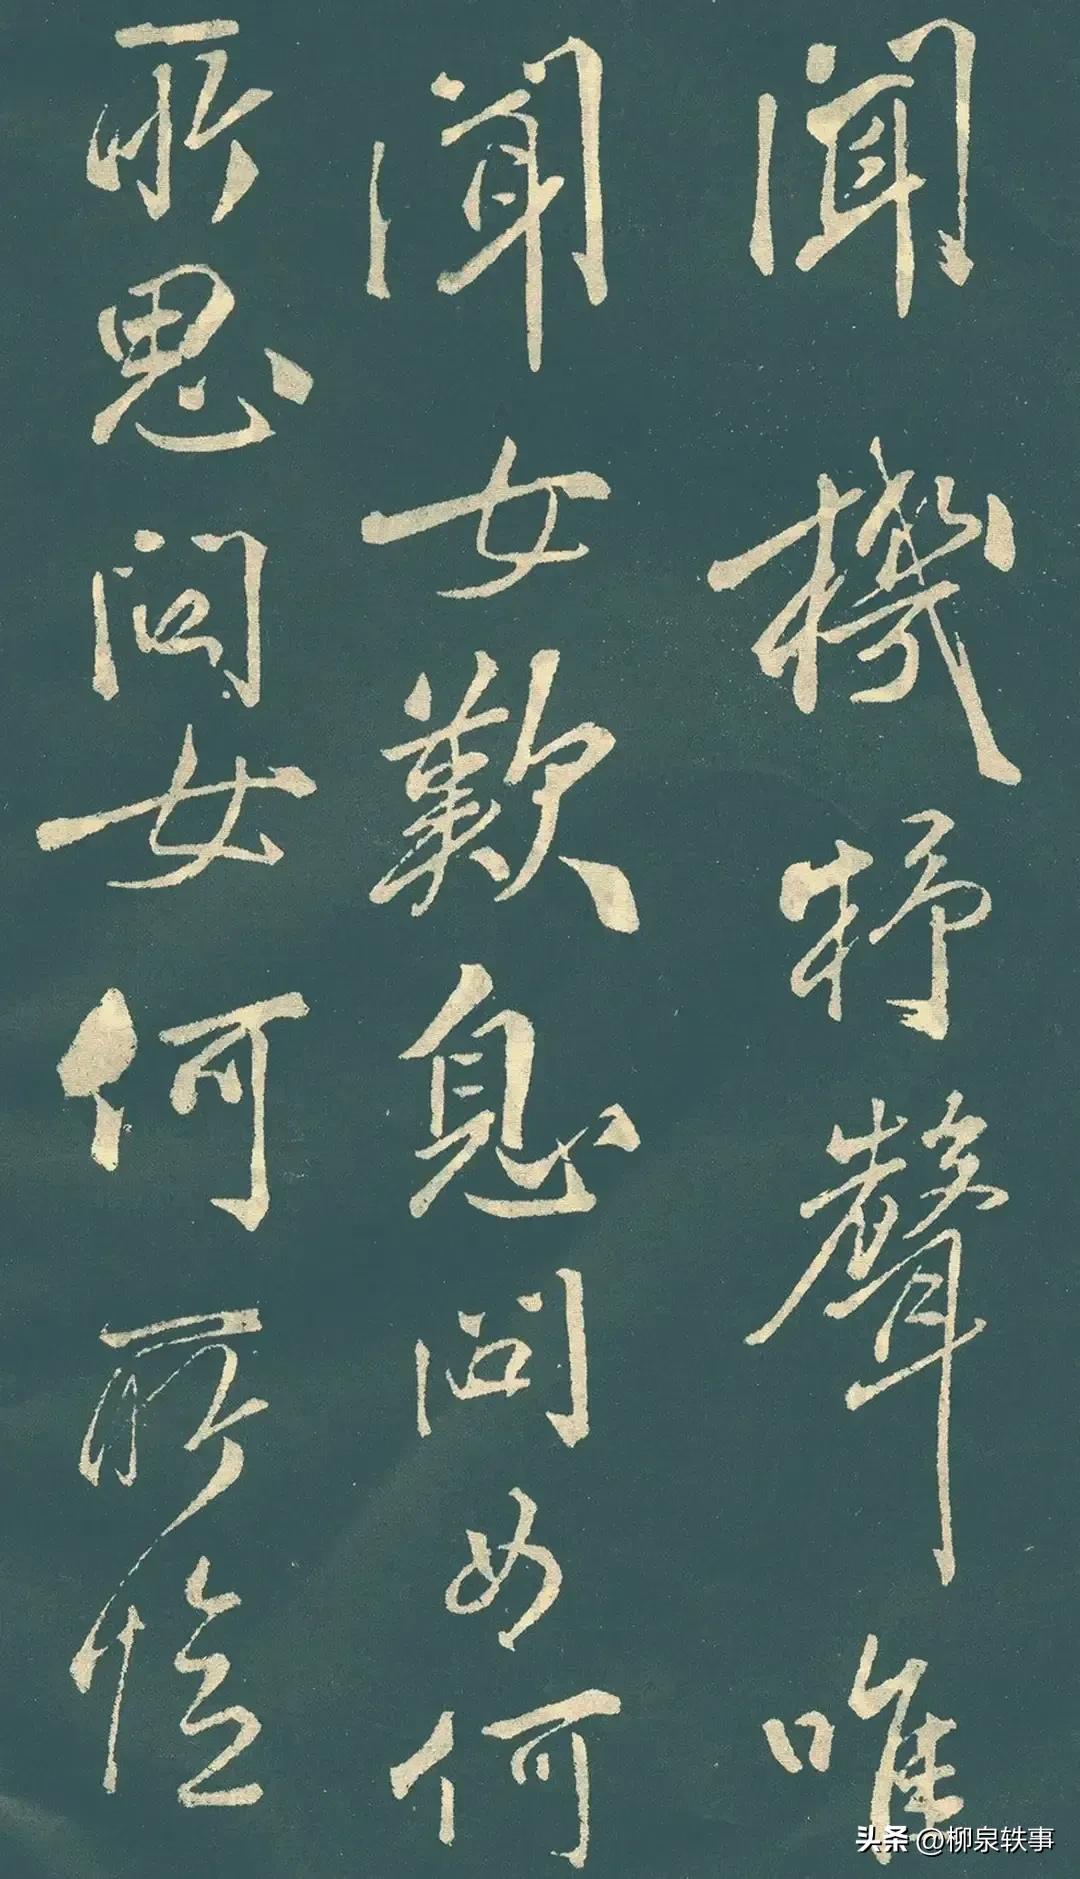 聞機杼聲唯
聞女歎息問女何
所思問女何所憶
头条 @柳泉轶事